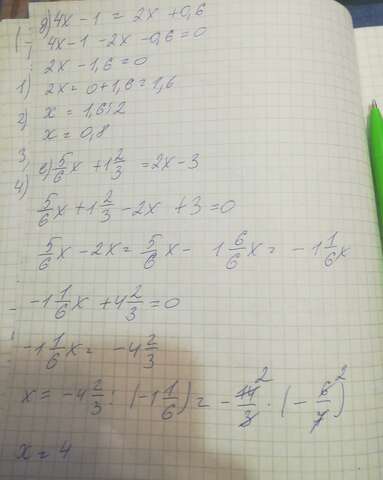 д) 4x - 1 = 2x + 0,6
4x - 1 - 2x - 0,6 = 0
2x - 1,6 = 0
1) 2x = 0 + 1,6 = 1,6
2) x = 1,6 : 2
x = 0,8
3) е) 5/6 x + 1 2/3 = 2x - 3
4)
5/6 x + 1 2/3 - 2x + 3 = 0
5/6 x - 2x = 5/6 x - 1 6/6 x = - 1 1/6 x
-1 1/6 x + 4 2/3 = 0
-1 1/6 x = - 4 2/3
x = - 4 2/3 : (-1 1/6) = - 14/3 2 · (- 6/7) 2
x = 4